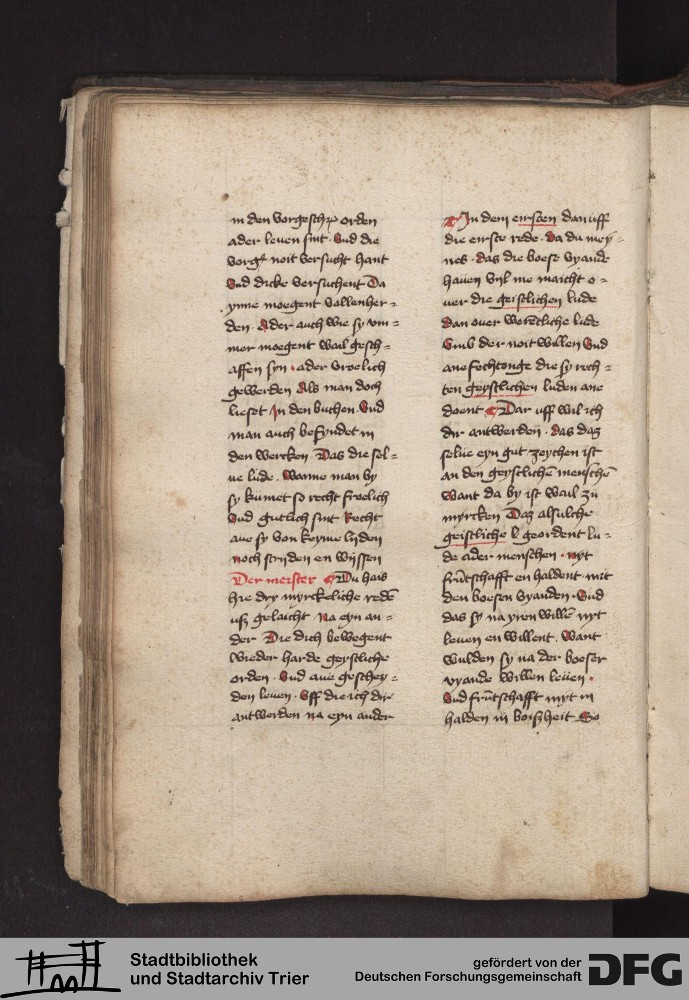 in den vorgeschꝛ orden
ader leuen sint · Vnd die
vorgꝭ noit versucht hant
Vnd dicke versuchent Da
ynne moegent vollenher-
den · Ader auch wie sy vm-
mer moegent wail gesch-
affen syn · ader vroelich
gewerden Als man doch
lieset In den buchen · Vnd
man auch befyndet in
den wercken · Das die sel-
ue lude · Wanne man by
sy kūmet so recht froelich
Vnd gutlich sint Recht
aue sy von keyme lyden
noch strijden en wijssen
Der meister Du hais
hie dry myrckeliche redē
uß gelaicht Na eyn an-
der Die dich bewegent
wieder harde geystliche
orden · Vnd aue geschey-
den leuen · Vff die ich dir
antwerden na eyn ander
In dem eirsten dan uff
die eirste rede · Da du mey-
nes · das die boese vyande
hauen vil me maicht o-
uer die geistlichen lude
Dan ouer werētliche lude
Vmb der noit willen Vnd
ane fechtonge die sy rech-
ten geystlichen luden ane
doent Dar uff wil ich
dir antwerden · das daz
selue eyn gut zeychen ist
an den geystlichē menschē
Want da by ist wail zu
myrcken Daz alsulche
geistliche geordent lu-
de ader menschen · nyt
frūtschafft en haldent mit
den boesen vyanden · Vnd
das sy na yren willē nyt
leuen en willent · Want
wulden sy na der boeser
vyande willen leuen ·
Vnd frūtschafft myt in
halden in boißheit So
Stadtbibliothek
und Stadtarchiv Trier
gefördert von der
Deutschen Forschungsgemeinschaft
DFG